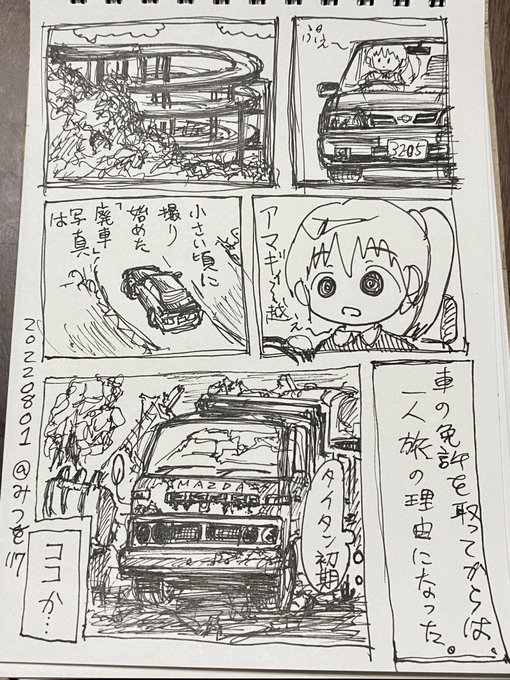 3205
アマギィ〜越え
小さい頃に
撮り
始めた
「廃車」
写真は
車の免許を取ってからは、
一人旅の理由になった。
MAZDA
タイタン初期
ココか…
20220801 @みつを117